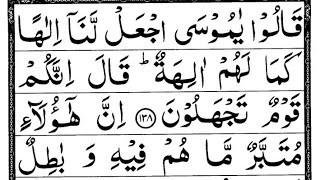 قَالُوْا يٰمُوْسَى اجْعَلْ لَّنَاۤ اِلٰهًا
كَمَا لَهُمْ اٰلِهَةٌ ؕ قَالَ اِنَّكُمْ
قَوْمٌ تَجْهَلُوْنَ ﴿۱۳۸﴾ اِنَّ هٰۤؤُلَآءِ
مُتَبَّرٌ مَّا هُمْ فِيْهِ وَ بٰطِلٌ